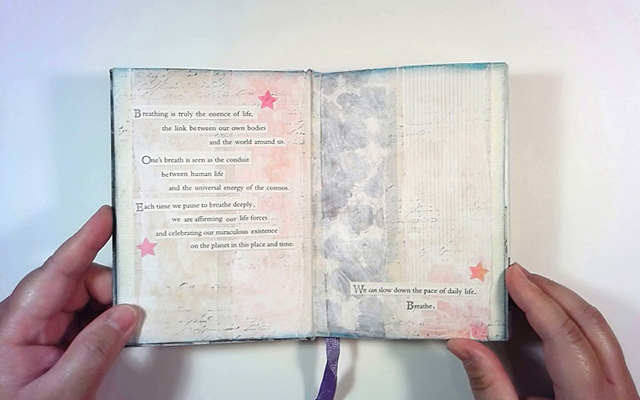 Breathing is truly the essence of life,
the link between our own bodies
and the world around us.
One's breath is seen as the conduit
between human life
and the universal energy of the cosmos.
Each time we pause to breathe deeply,
we are affirming our life forces
and celebrating our miraculous existence
on the planet in this place and time.
We can slow down the pace of daily life.
Breathe.